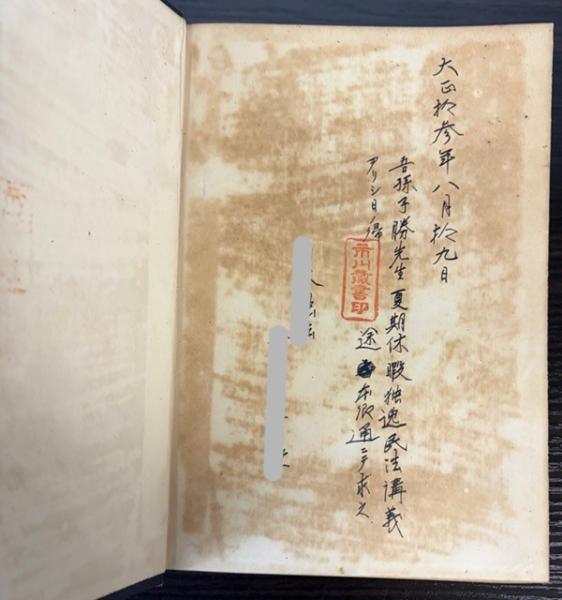 大正拾参年八月拾九日
吾孫子勝先生夏期休暇独逸民法講義
アリシ日ノ帰途本郷通ニテ求之
市川蔵書印